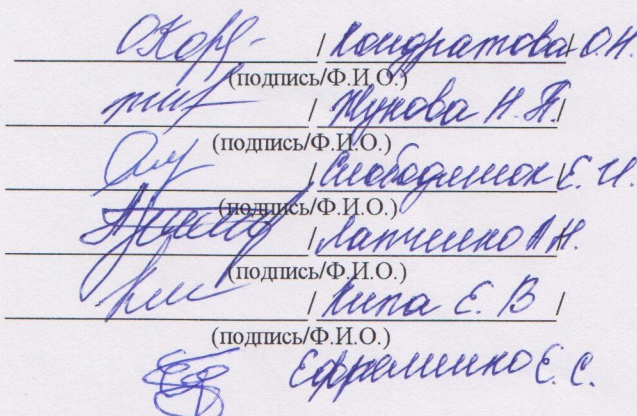 / Кондратова О.Н.
(подпись/Ф.И.О.)
/ Жукова Н.П. /
(подпись/Ф.И.О.)
/ Слободянюк Е.И.
(подпись/Ф.И.О.)
/ Лапченко А.Н.
(подпись/Ф.И.О.)
/ Кипа Е.В /
(подпись/Ф.И.О.)
Ефременко Е.С.